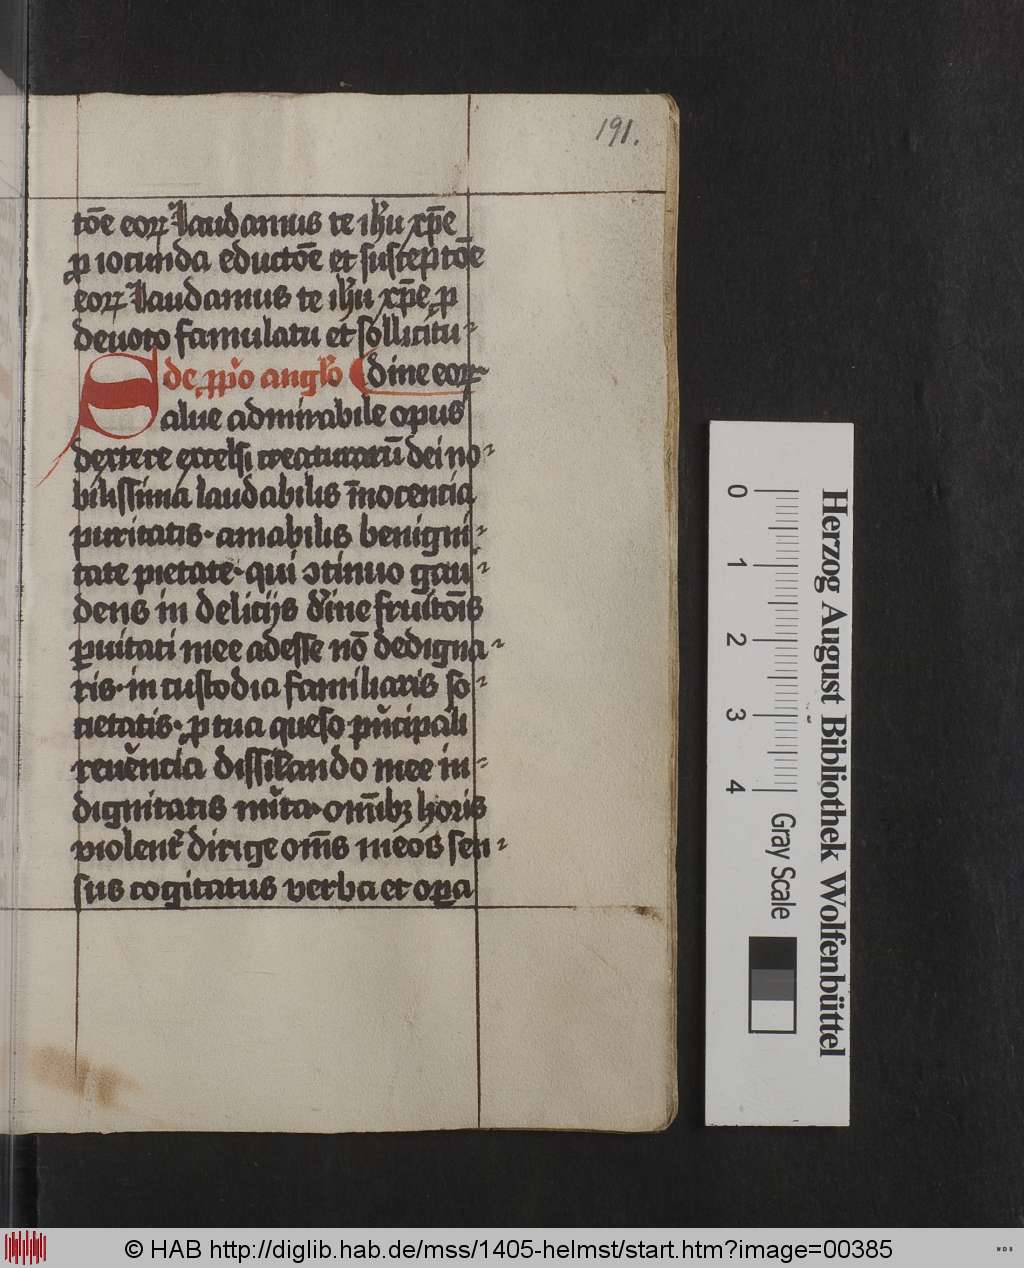 191.
tōe eoꝝ Laudamus te ihū xp̄e
ꝓ iocunda eductōe et susceptōe
eoꝝ Laudamus te ihū xp̄e ꝓ
deuoto famulatu et sollicitu⸗
de ꝓprio anglo dine eoꝝ
Salue admirabile opus
dextere excelsi creaturarū dei no⸗
bilissima laudabilis īnocencia
puritatis · amabilis benigni⸗
tate pietate · qui ↄtinuo gau⸗
dens in delicijs diuīe fruitōis
ꝑuitati mee adesse nō dedigna⸗
ris · in custodia familiaris so⸗
cietatis · ꝓ tua queso pͥncipali
reuerēncia dissilando mee in⸗
dignitatis mͥta · oīnibꝫ horis
violent᷑ dirige om̄s meos sen⸗
sus cogitatus verba et oꝑa
0 1 2 3 4
Gray Scale
Herzog August Bibliothek Wolfenbüttel
© HAB http://diglib.hab.de/mss/1405-helmst/start.htm?image=00385